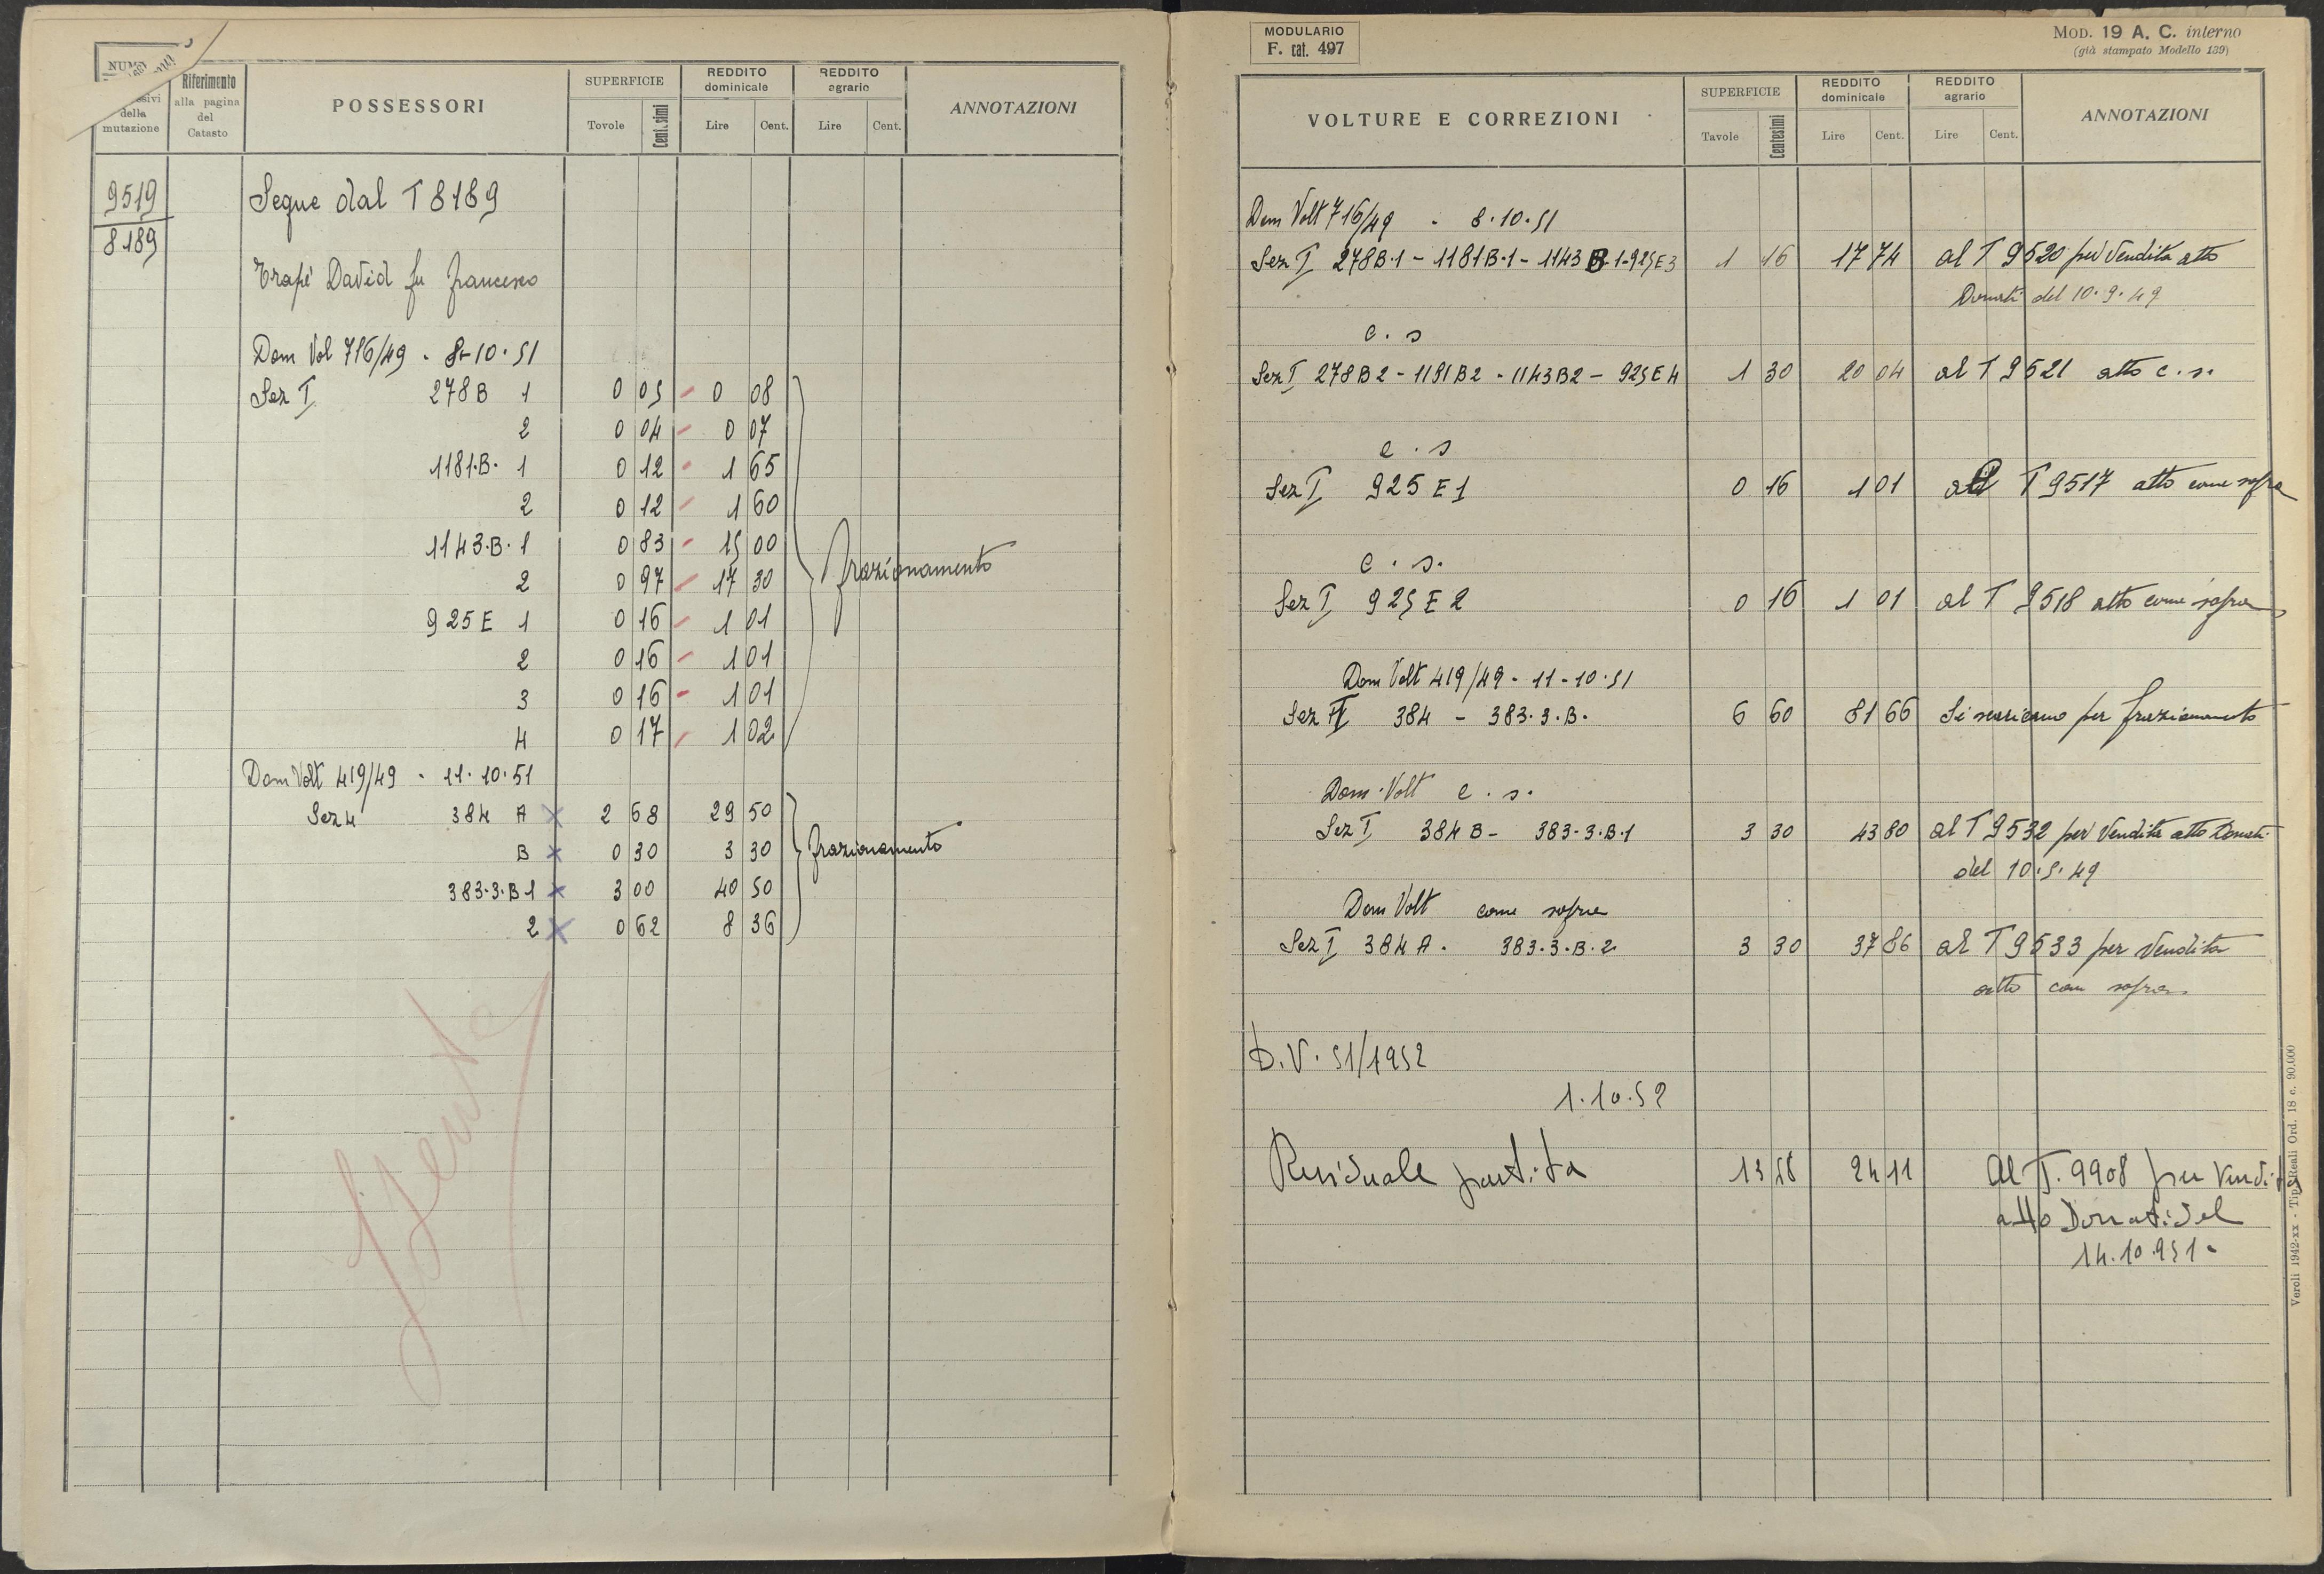 NUM
ssivi
della
mutazione
Riferimento
alla pagina
del
Catasto
POSSESSORI
SUPERFICIE
Tovole
Cent.simi
REDDITO
dominicale
Lire
Cent.
REDDITO
agrario
Lire
Cent.
ANNOTAZIONI
9519
8189
Segue dal T 8189
Trapé David fu Francesco
Dom Vol 716/49 - 8-10-51
Sez I 278 B 1 0 05 0 08
2 0 04 0 07
1181.B. 1 0 12 1 65
2 0 12 1 60
1143.B. 1 0 83 15 00
2 0 97 17 30
frazionamento
925 E 1 0 16 1 01
2 0 16 1 01
3 0 16 1 01
4 0 17 1 02
Dom Volt 419/49 - 11.10.51
Sez 4 384 A 2 68 29 50
B 0 30 3 30
frazionamento
383.3.B 1 3 00 40 50
2 0 62 8 36
MODULARIO
F. cat. 497
MOD. 19 A. C. interno
(già stampato Modello 139)
VOLTURE E CORREZIONI
SUPERFICIE
Tavole
Centesimi
REDDITO
dominicale
Lire
Cent.
REDDITO
agrario
Lire
Cent.
ANNOTAZIONI
Dom Volt 716/49 - 8.10.51
Sez I 278B.1 - 1181B.1 - 1143 B 1-925E3 1 16 17 74 al T 9520 per Vendita atto
Donati del 10.9.49
c. s
Sez I 278 B 2 - 1191 B2 - 1143 B2 - 925 E 4 1 30 20 04 al T 9521 atto c. s.
c. s
Sez I 925 E 1 0 16 1 01 al T 9517 atto come sopra
c. s.
Sez I 925 E 2 0 16 1 01 al T 9518 atto come sopra
Dom Volt 419/49 - 11-10.51
Sez 384 - 383.3.B. 6 60 81 66 Si scaricano per frazionamento
Dom. Volt c. s.
Sez I 384 B - 383-3.B.1 3 30 43 80 al T 9532 per Vendita atto Donati
del 10.5.49
Dom Volt come sopra
Sez I 384 A. 383.3.B.2 3 30 37 86 al T 9533 per Vendita
atto com sopra
D.V. 51/1952
1.10.52
Residuale partita 13 58 24 11 Al T. 9908 per Vendita
atto Donati del
14.10.951.
Veroli 1942-xx - Tip. Reali Ord. 18 c. 90.000